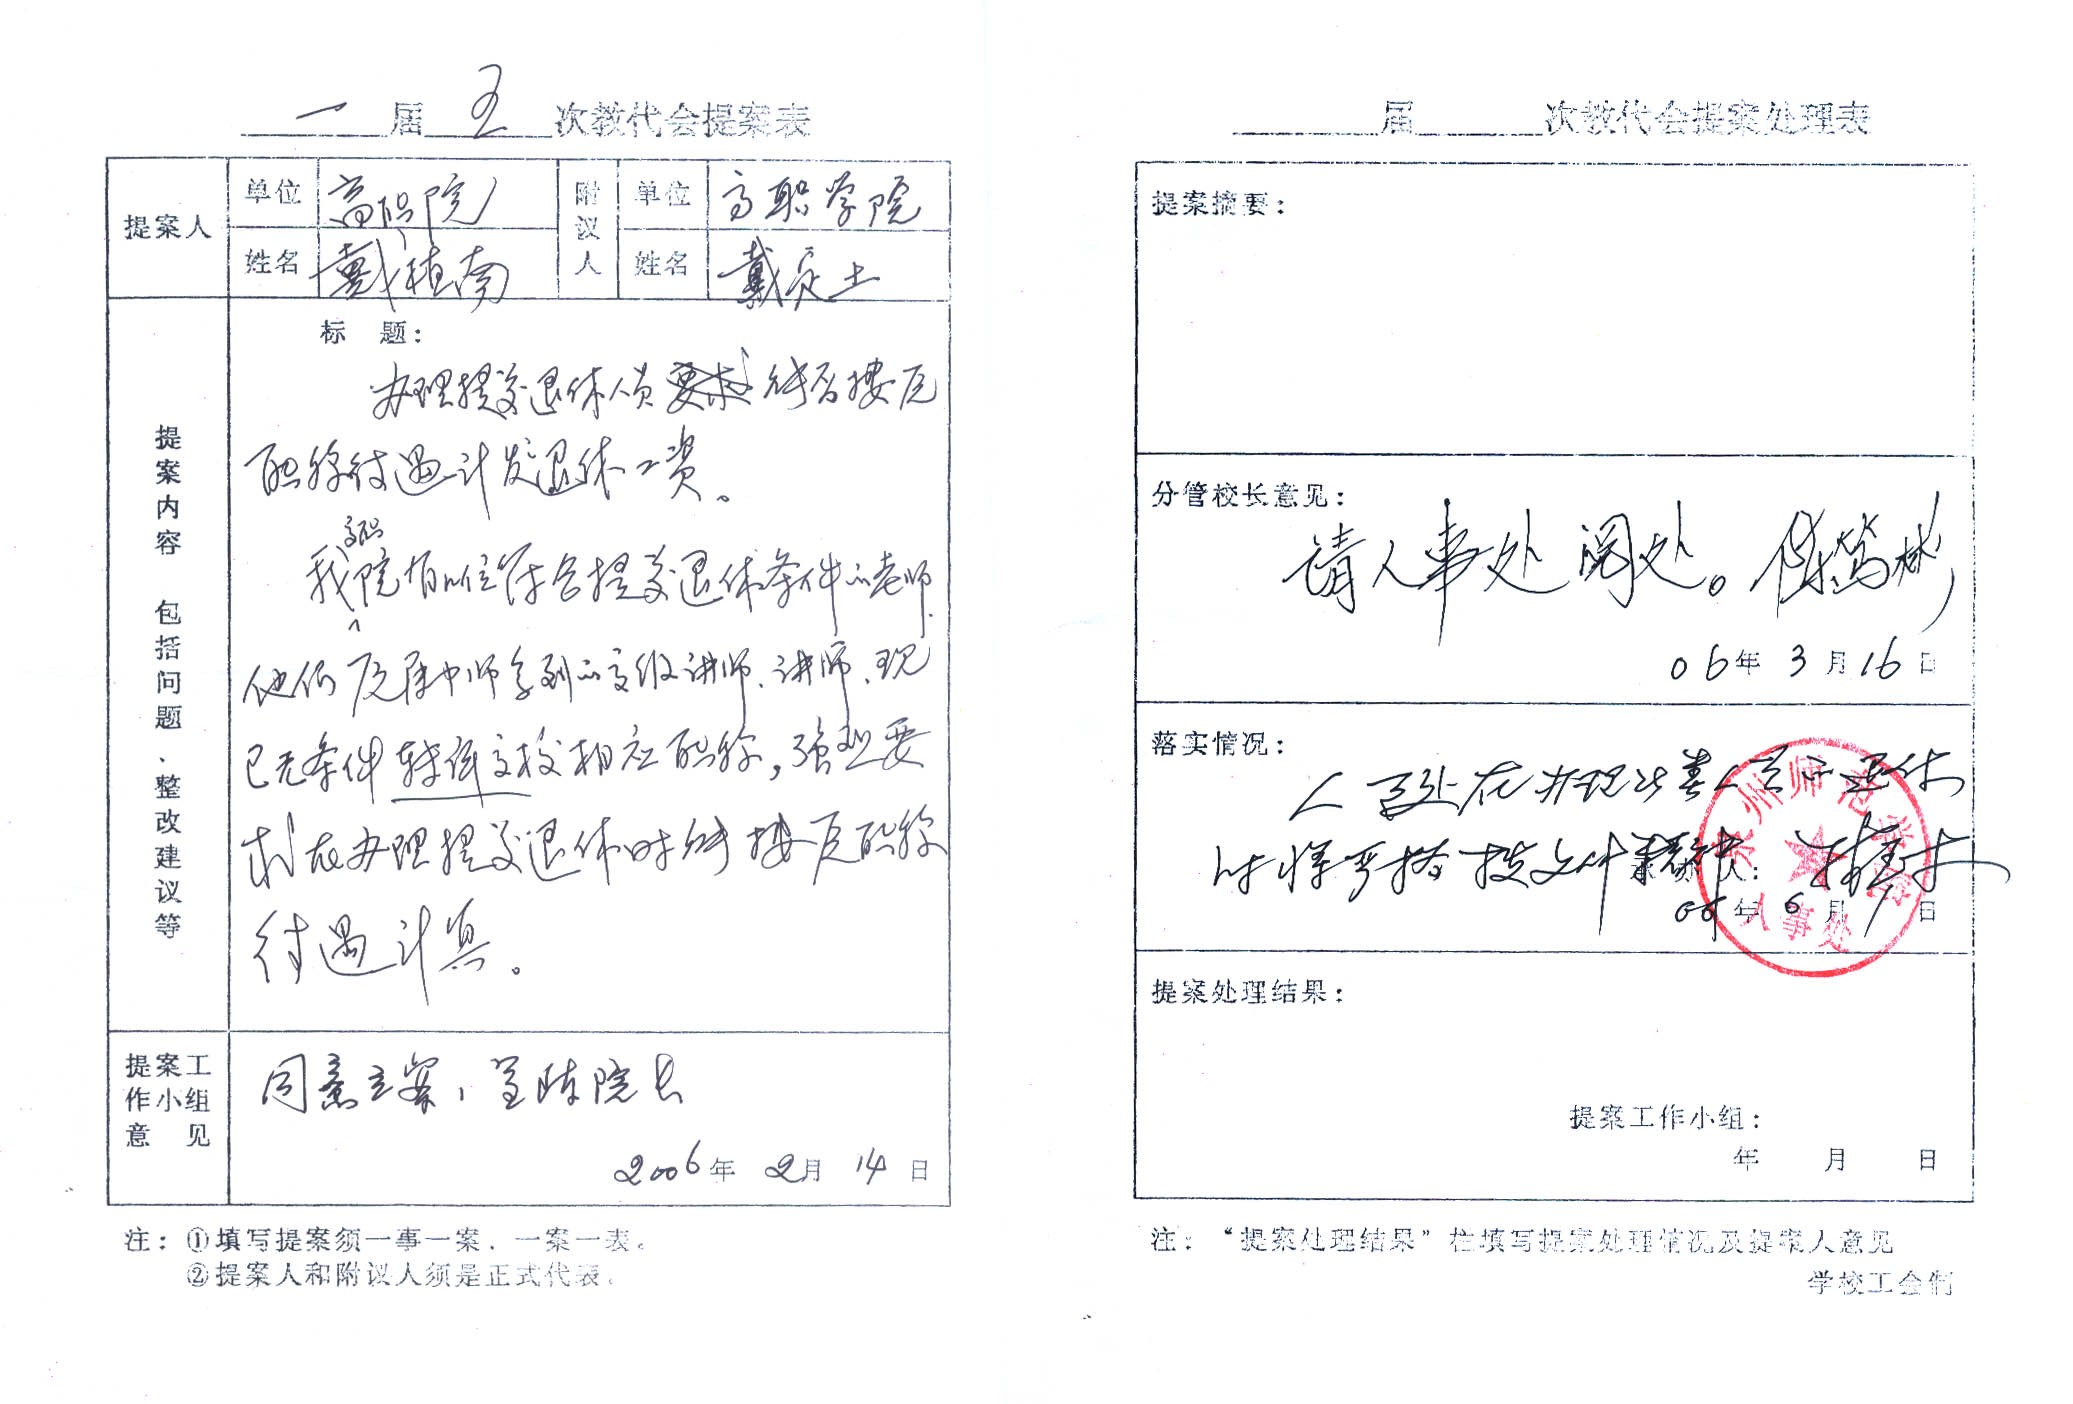 一届五次教代会提案表
提案人
单位 高职院
姓名 戴植南
附议人
单位 高职学院
姓名 戴
提案内容 包括问题、整改建议等
标 题：
办理提前退休人员能否按原
职称待遇计发退休工资。
我高职院有几位符合提前退休条件的老师.
他们原属中师系列的高级讲师、讲师、现
已无条件转评高校相应职称，强烈要
求在办理提前退休时能按原职称
待遇计算。
提案工作小组意见
同意立案，呈陈院长
2006年 2月 14日
注：①填写提案须一事一案、一案一表。
②提案人和附议人须是正式代表。
届 次教代会提案处理表
提案摘要：
分管校长意见：
请人事处阅处。陈笃彬
06年 3月 16日
落实情况：
人事处在办理此类人员的退休
时将严格按文件
人：
年 6月 日
泉州师范学院
人事处
提案处理结果：
提案工作小组：
年 月 日
注：“提案处理结果”栏填写提案处理情况及提案人意见
学校工会制